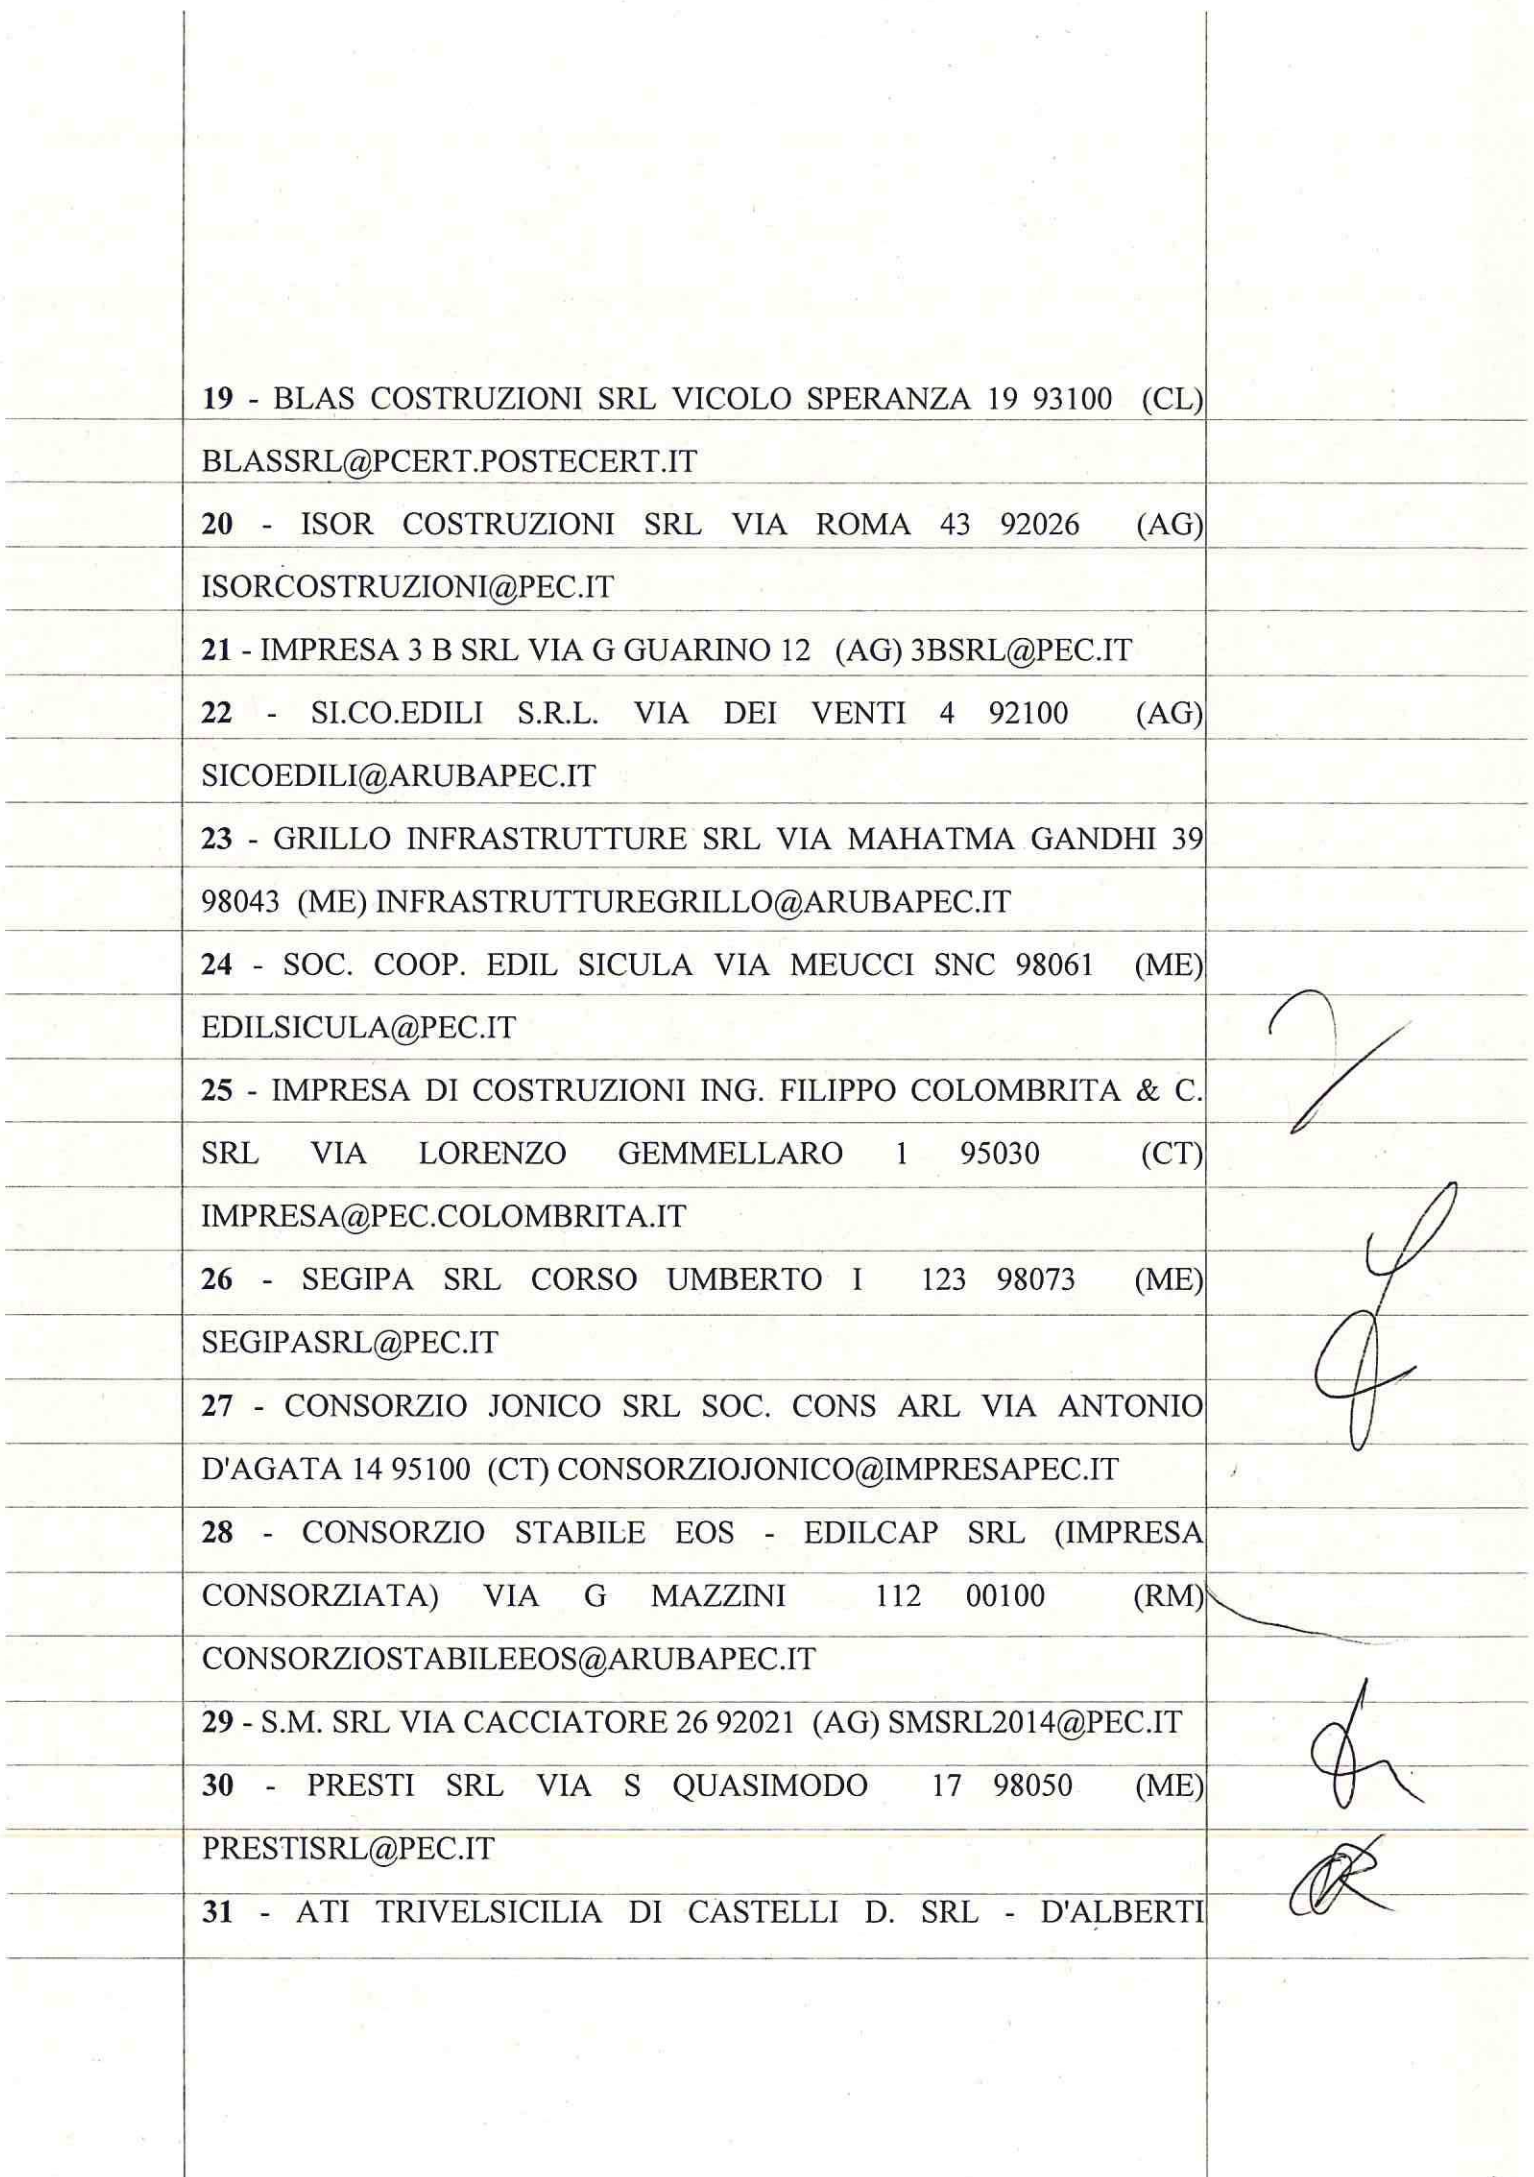 19 - BLAS COSTRUZIONI SRL VICOLO SPERANZA 19 93100 (CL)
BLASSRL@PCERT.POSTECERT.IT
20 - ISOR COSTRUZIONI SRL VIA ROMA 43 92026 (AG)
ISORCOSTRUZIONI@PEC.IT
21 - IMPRESA 3 B SRL VIA G GUARINO 12 (AG) 3BSRL@PEC.IT
22 - SI.CO.EDILI S.R.L. VIA DEI VENTI 4 92100 (AG)
SICOEDILI@ARUBAPEC.IT
23 - GRILLO INFRASTRUTTURE SRL VIA MAHATMA GANDHI 39
98043 (ME) INFRASTRUTTUREGRILLO@ARUBAPEC.IT
24 - SOC. COOP. EDIL SICULA VIA MEUCCI SNC 98061 (ME)
EDILSICULA@PEC.IT
25 - IMPRESA DI COSTRUZIONI ING. FILIPPO COLOMBRITA & C.
SRL VIA LORENZO GEMMELLARO 1 95030 (CT)
IMPRESA@PEC.COLOMBRITA.IT
26 - SEGIPA SRL CORSO UMBERTO I 123 98073 (ME)
SEGIPASRL@PEC.IT
27 - CONSORZIO JONICO SRL SOC. CONS ARL VIA ANTONIO
D'AGATA 14 95100 (CT) CONSORZIOJONICO@IMPRESAPEC.IT
28 - CONSORZIO STABILE EOS - EDILCAP SRL (IMPRESA
CONSORZIATA) VIA G MAZZINI 112 00100 (RM)
CONSORZIOSTABILEEOS@ARUBAPEC.IT
29 - S.M. SRL VIA CACCIATORE 26 92021 (AG) SMSRL2014@PEC.IT
30 - PRESTI SRL VIA S QUASIMODO 17 98050 (ME)
PRESTISRL@PEC.IT
31 - ATI TRIVELSICILIA DI CASTELLI D. SRL - D'ALBERTI